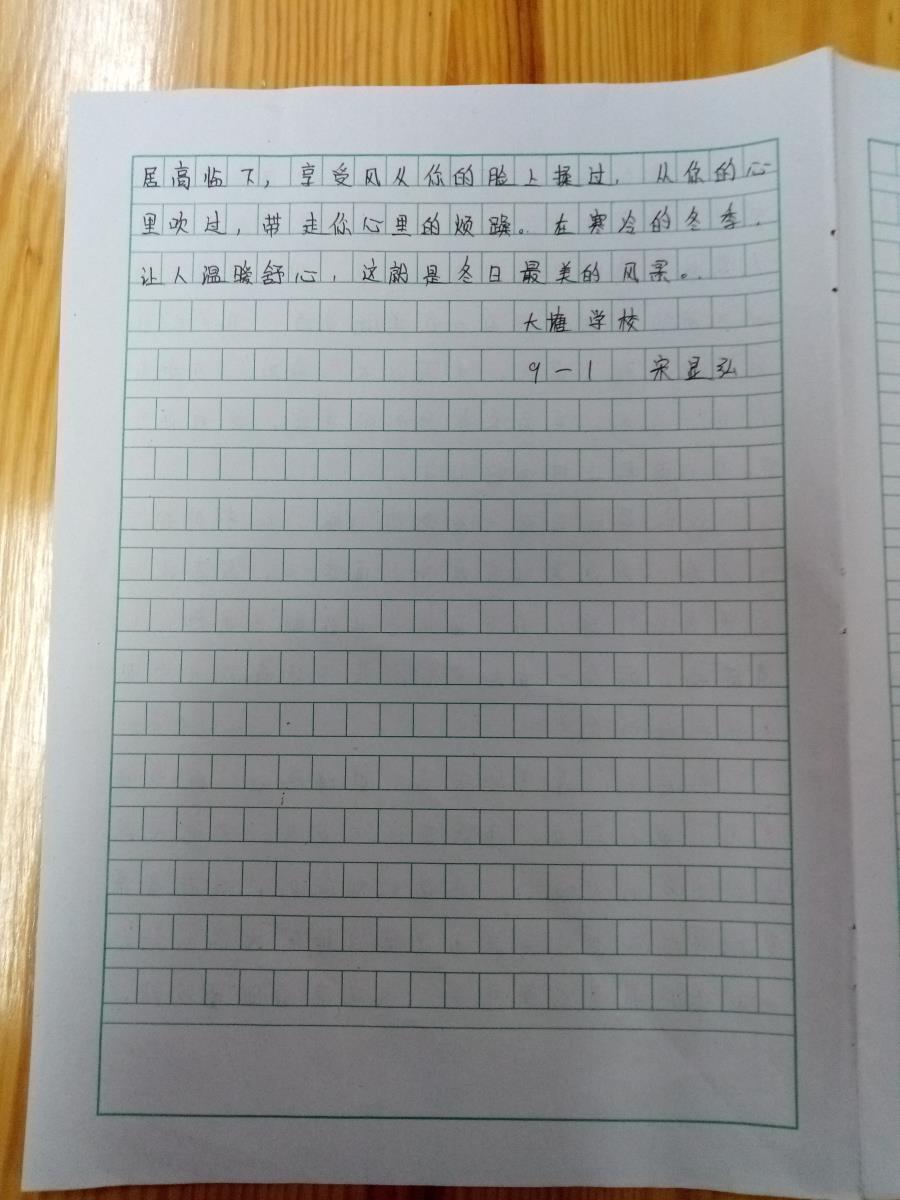 居高临下，享受风从你的脸上掠过，从你的心
里吹过，带走你心里的烦躁。在寒冷的冬季，
让人温暖舒心，这就是冬日最美的风景。
大塘学校
9－1 宋显弘